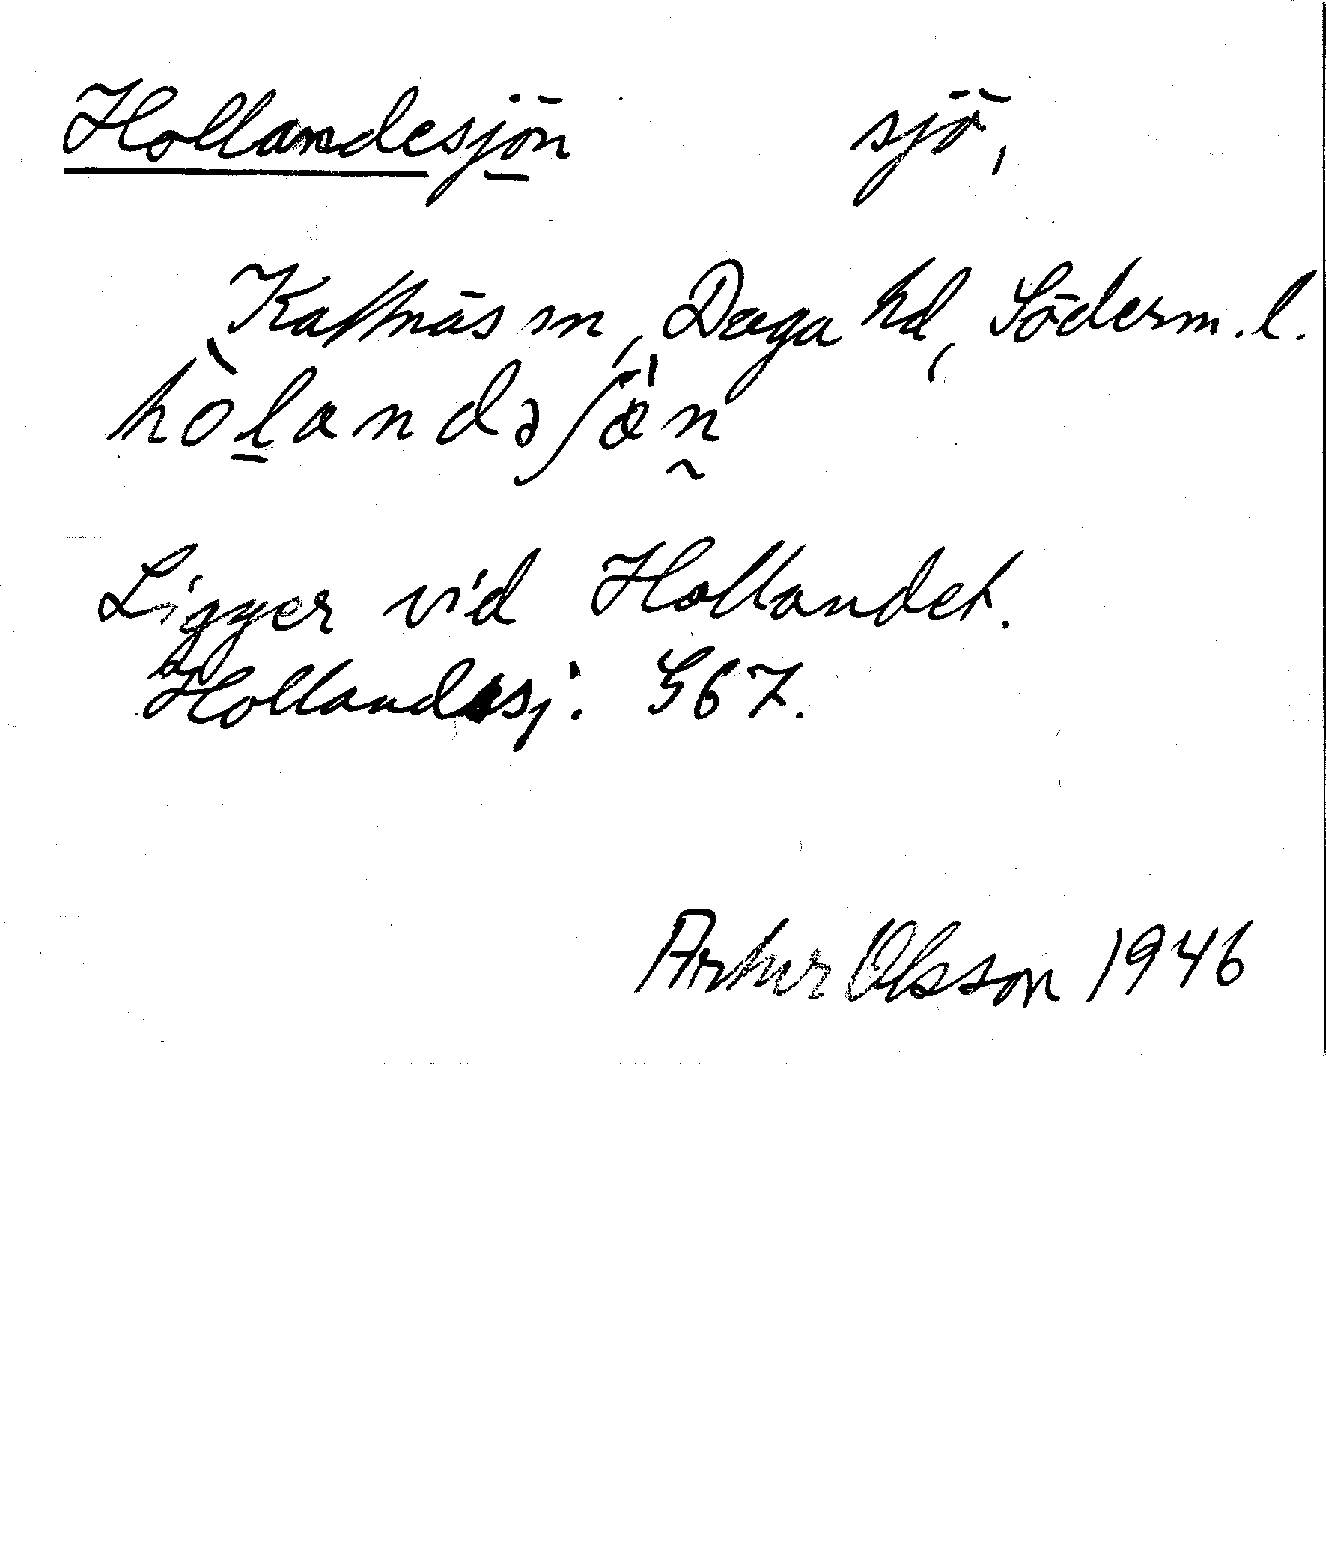 Hollandesjön sjö,
Kattnäs sn, Daga hd, Söderm. l.
hò̱landəʃö̀n̰
Ligger vid Hollandet.
Hollandssj. G67.
Artur Olsson 1946